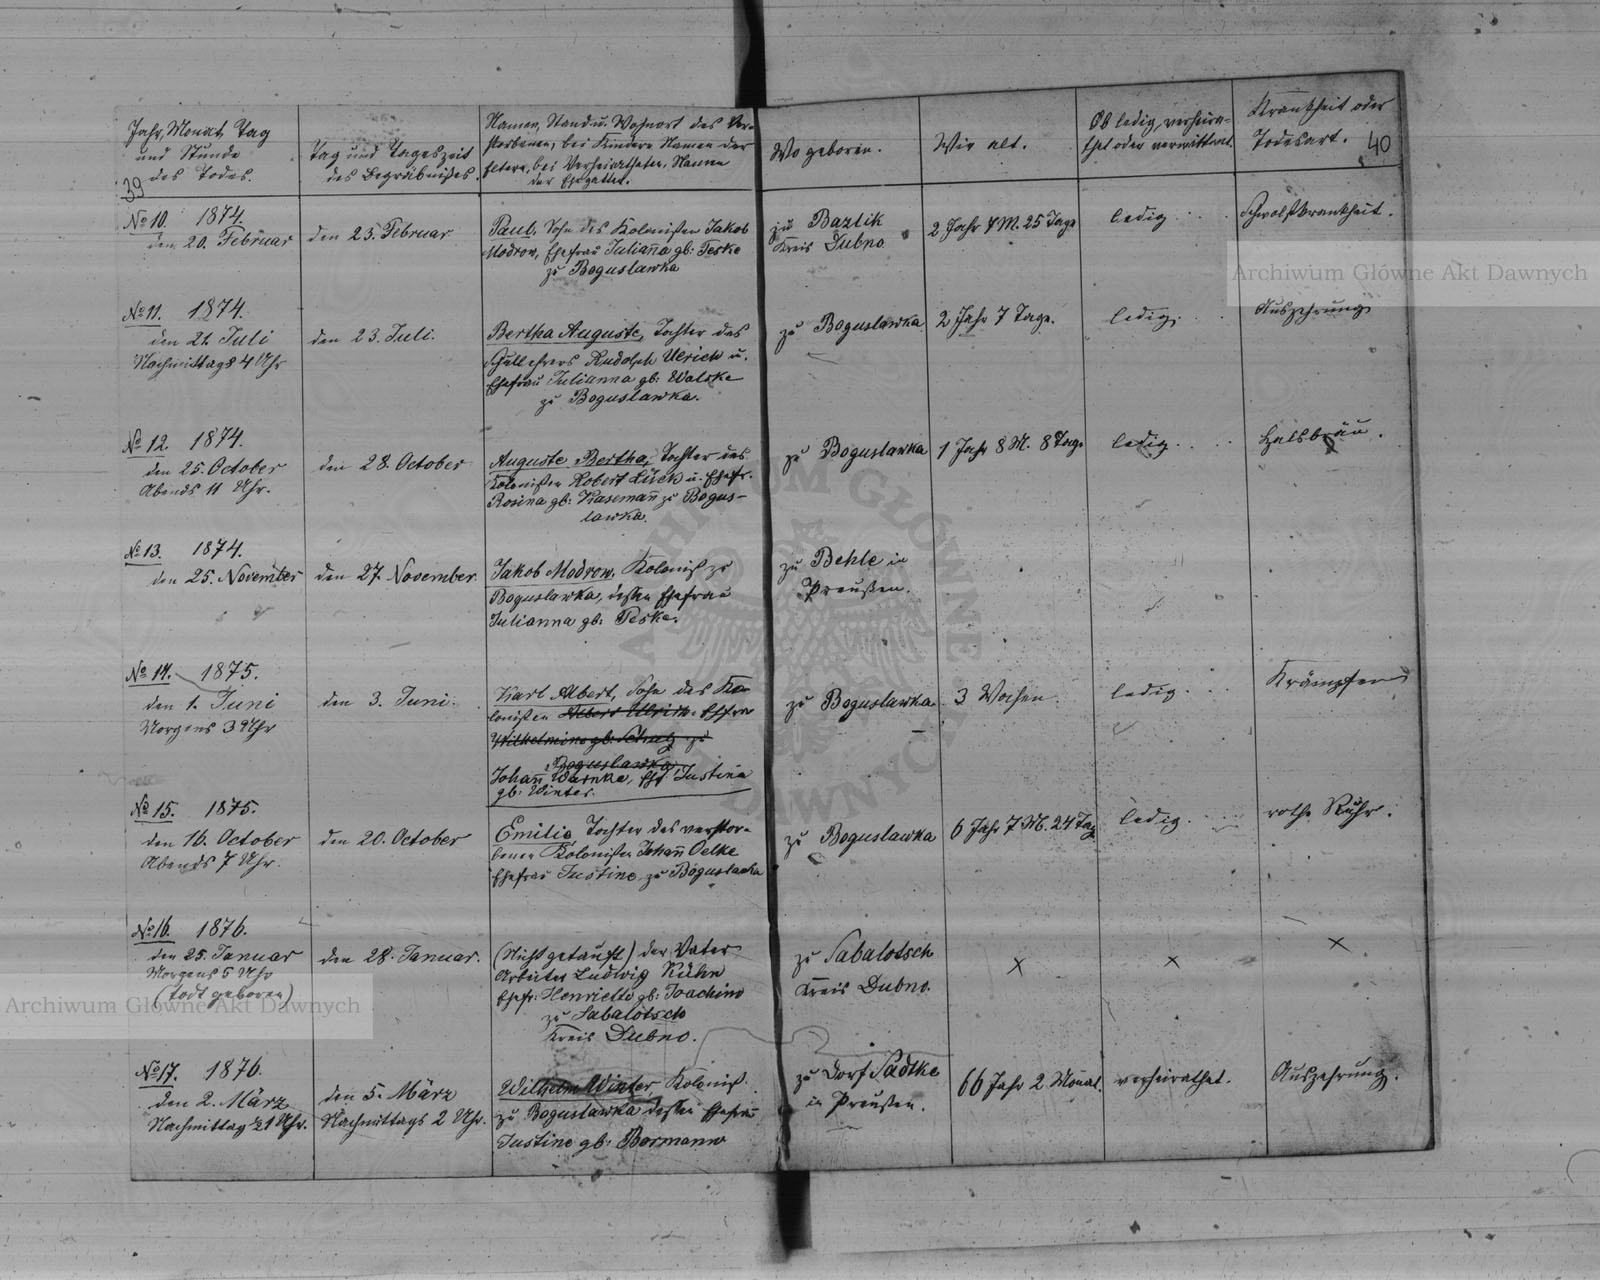 39
Jahr, Monat, Tag
und Stunde
des Todes.
Tag und Tageszeit
des Begräbnißes.
Namen, Stand u. Wohnort des Ver-
storbenen, bei Kindern Namen der
Eltern, bei Verheiratheten, Namen
der Ehegatten.
Wo geboren.
Wie alt.
Ob ledig, verheira-
thet oder verwittwet.
Krankheit oder
Todesart.
40
No 10. 1874.
den 20. Februar
den 23. Februar
Paul, Sohn des Kolonisten Jakob
Modrow, Ehefrau Julianna gb: Teske
zu Boguslawka
zu Bazlik
Kreis Dubno
2 Jahr 4 M. 25 Tage
ledig
Archiwum Główne Akt Dawnych
No 11. 1874.
den 21. Juli
Nachmittags 4 Uhr
den 23. Juli.
Bertha Auguste, Tochter des
Schullehrers Rudolph Ulrich u.
Ehefrau Julianna gb: Watske
zu Boguslawka.
zu Boguslawka
2 Jahr 7 Tage.
ledig.
Auszehrung
No 12. 1874.
den 25. October
Abends 11 Uhr.
den 28. October
Auguste Bertha, Tochter des
Kolonisten Robert Lück u. Ehefr.
Rosina gb: Kasemann zu Bogus-
lawka.
zu Boguslawka
1 Jahr 8 M. 8 Tage
ledig.
Halsbräu.
No 13. 1874.
den 25. November
den 27. November.
Jakob Modrow, Kolonist zu
Boguslawka, deßen Ehefrau
Julianna gb: Teske.
zu Behle in
Preußen.
No 14. 1875.
den 1. Juni
Morgens 3 Uhr
den 3. Juni.
Karl Albert, Sohn des Ko-
lonisten Albert Ulrich. Ehefra
Wilhelmine gb: Schulz zu
Boguslawka
Johann Warnke, Ehf Justina
gb: Winter.
zu Boguslawka
3 Wochen
ledig.
Krämpfen
No 15. 1875.
den 16. October
Abends 7 Uhr.
den 20. October
Emilie Tochter des verstor-
benen Kolonisten Johann Oelke
Ehefrau Justine zu Boguslawka
zu Boguslawka
6 Jahr 7 M. 24 Tag
ledig.
rothe Ruhr.
No 16. 1876.
den 25. Januar
Morgens 5 Uhr
(todt geboren)
den 28. Januar.
(Nicht getauft) der Vater
Arbeiter Ludwig Kühn
Ehefr: Henriette gb: Joachim
zu Sabalotsch
Kreis Dubno.
zu Sabalotsch
Kreis Dubno.
x
x
x
Archiwum Główne Akt Dawnych
No 17. 1876.
den 2. März
Nachmittag ½1 Uhr.
den 5. März
Nachmittags 2 Uhr.
Wilhelm Winter Kolonist
zu Boguslawka deßen Ehefrau
Justine gb: Bormann
zu Dorf Sadtke
in Preußen.
66 Jahr 2 Monat.
verheirathet.
Auszehrung.
ARCHIWUM GŁÓWNE AKT DAWNYCH